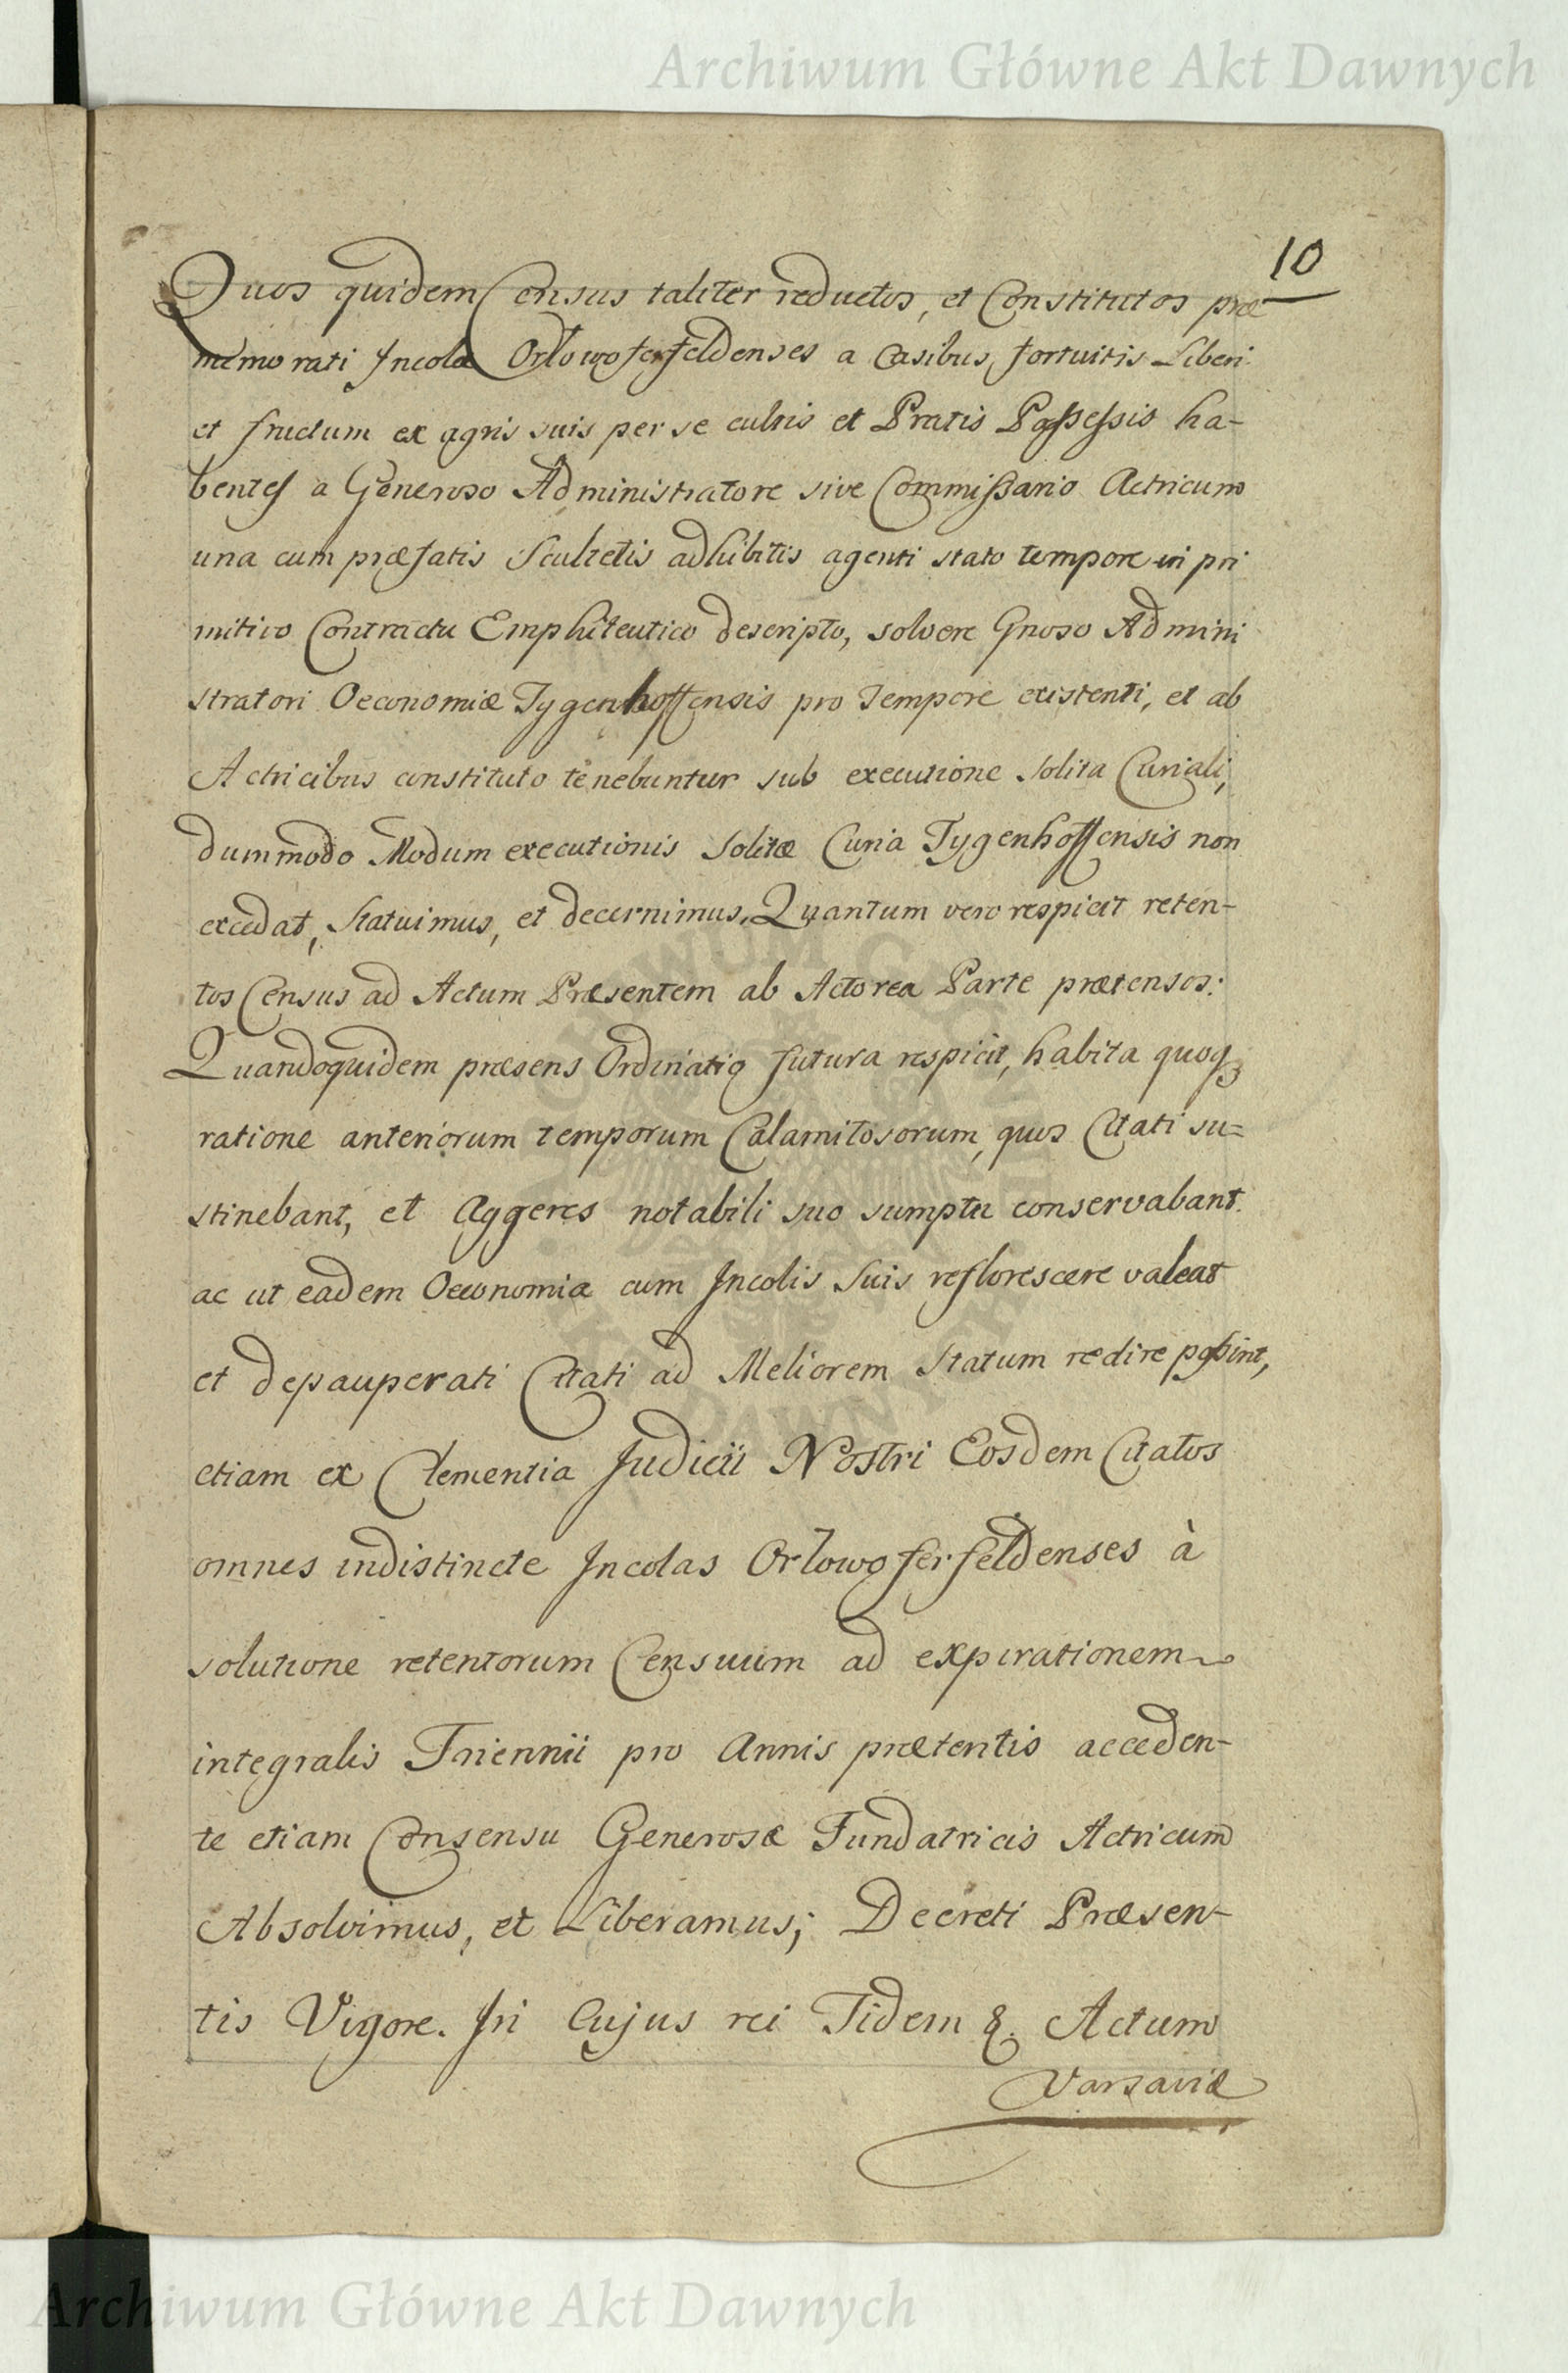 Archiwum Główne Akt Dawnych
10
Quos quidem Census taliter reductos, et Constitutos præ
memorati Incolæ Orlowoferfeldenses a Casibus fortuitis Liberi
et fructum ex agris suis per se cultis et Pratis Possessis ha-
bentes a Generoso Administratore sive Commissario Actricum
una cum præfatis Scultetis adhibitis agenti stato tempore in pri
mitivo Contractu Emphiteutico descripto, solvere Gnoso Admini
stratori Oeconomiæ Tygenhoffensis pro Tempore existenti, et ab
Actricibus constituto tenebuntur sub executione solita Curiali,
dummodo Modum executionis solitæ Curia Tygenhoffensis non
excedat, Statuimus, et decernimus, Quantum vero respicit reten-
tos Census ad Actum Præsentem ab Actorea Parte prætensos:
Quandoquidem præsens Ordinatio futura respicit, habita quoq3
ratione anteriorum temporum Calamitosorum, quos Citati su=
stinebant, et Aggeres notabili suo sumptu conservabant.
ac ut eadem Oeconomia cum Incolis Suis reflorescere valeat
et depauperati Citati ad Meliorem Statum redire possint,
etiam ex Clementia Judicii Nostri Eosdem Citatos
omnes indistincte Incolas Orlowoferfeldenses à
solutione retentorum Censuum ad expirationem
integralis Triennii pro Annis prætentis acceden-
te etiam Consensu Generosæ Fundatricis Actricum
Absolvimus, et Liberamus; Decreti Præsen-
tis Vigore. In Cujus rei Fidem &. Actum
Varsaviæ
Archiwum Główne Akt Dawnych